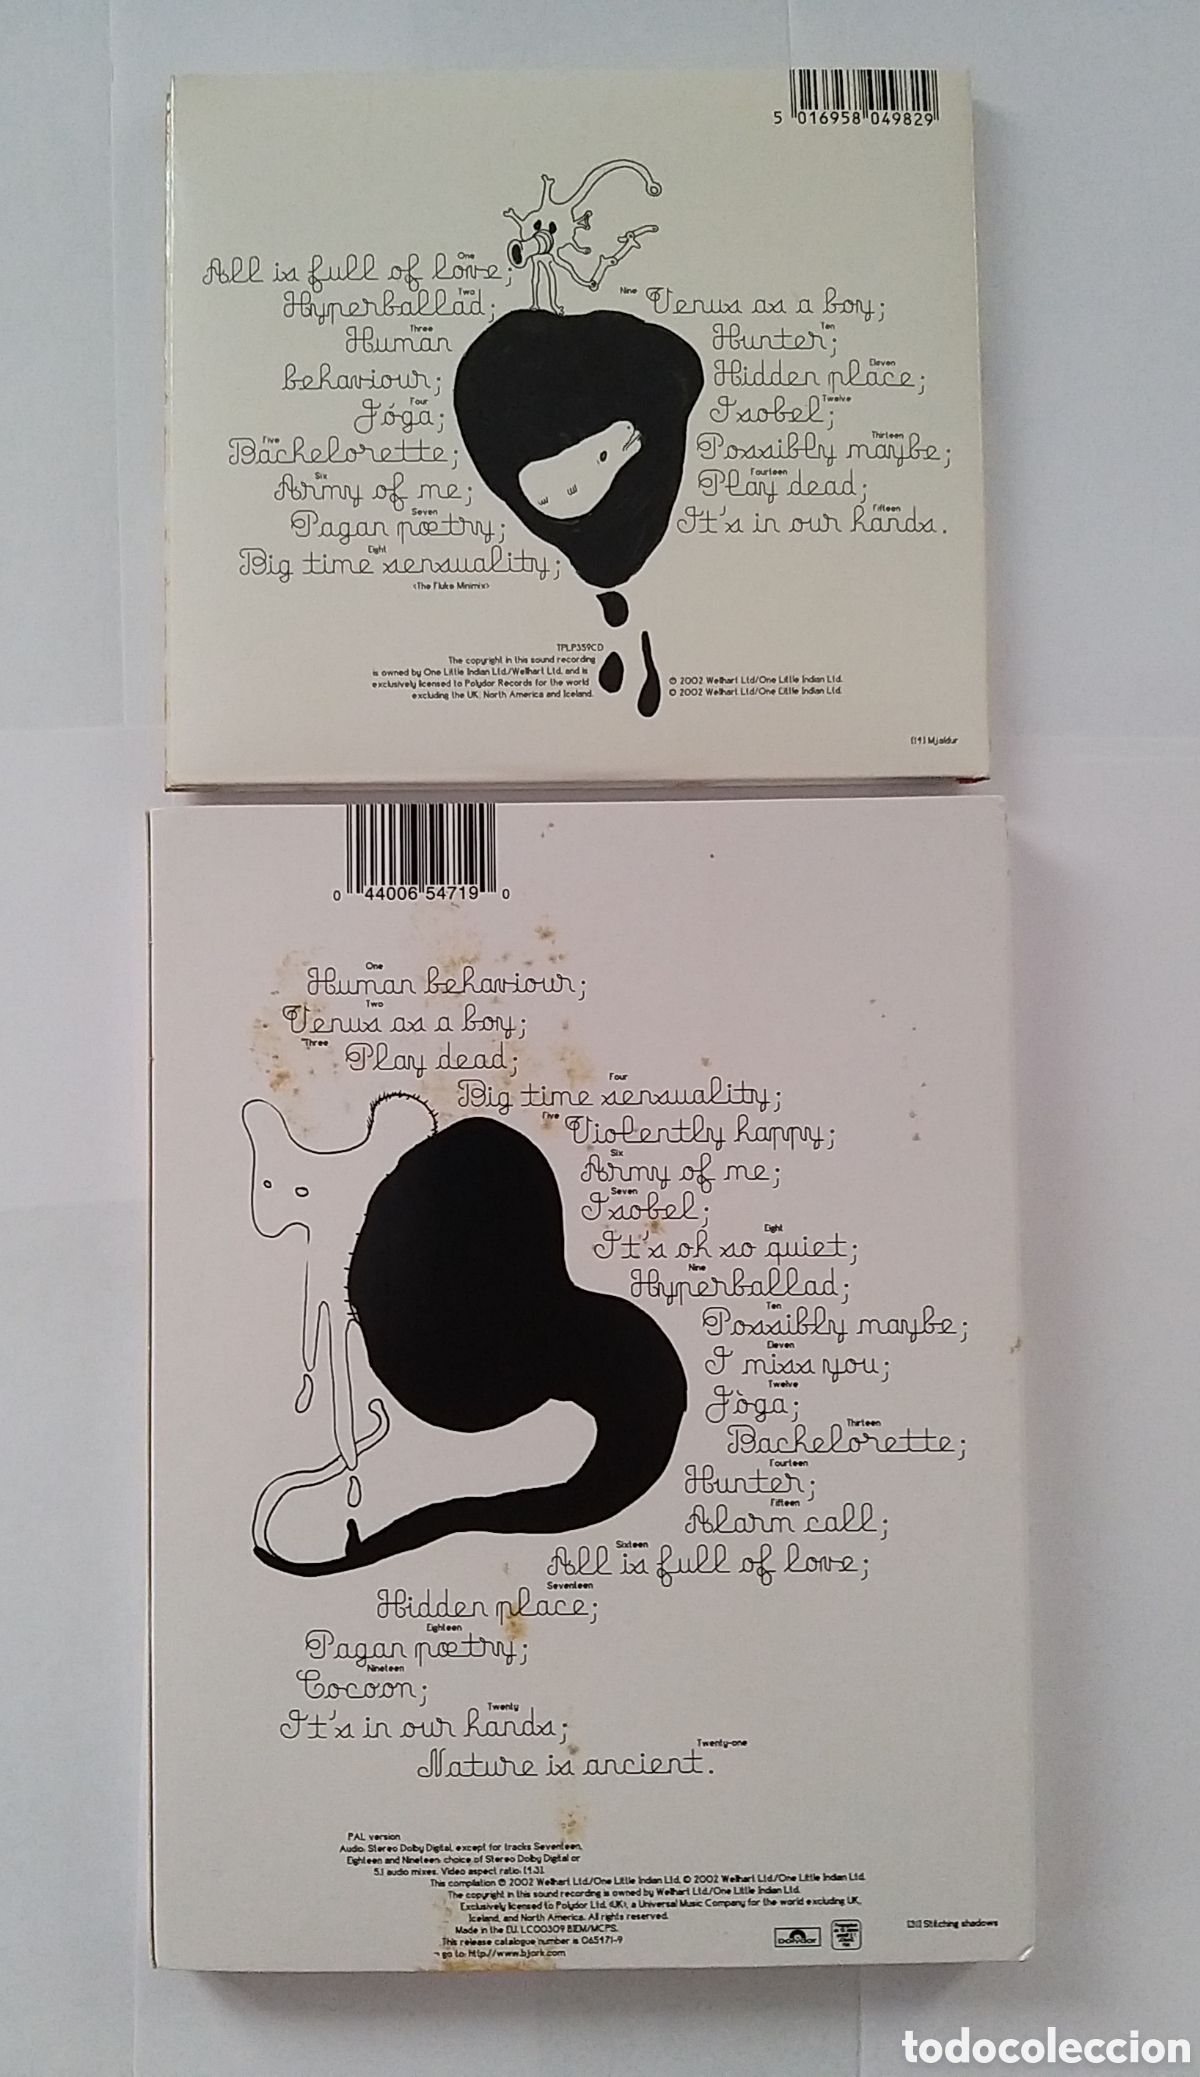 5 016958 049829
One
All is full of love;
Two
Hyperballad;
Three
Human
behaviour;
Four
Jóga;
Five
Bachelorette;
Six
Army of me;
Seven
Pagan pœtry;
Eight
Big time sensuality;
<The Fluke Minimix>
Nine
Venus as a boy;
Ten
Hunter;
Eleven
Hidden place;
Twelve
Isobel;
Thirteen
Possibly maybe;
Fourteen
Play dead;
Fifteen
It's in our hands.
TPLP359CD
The copyright in this sound recording
is owned by One Little Indian Ltd./Wellhart Ltd. and is
exclusively licensed to Polydor Records for the world
excluding the UK, North America and Iceland.
℗ 2002 Wellhart Ltd/One Little Indian Ltd.
© 2002 Wellhart Ltd/One Little Indian Ltd.
Mjaldur
0 44006 54719 0
One
Human behaviour;
Two
Venus as a boy;
Three
Play dead;
Four
Big time sensuality;
Five
Violently happy;
Six
Army of me;
Seven
Isobel;
Eight
It's oh so quiet;
Nine
Hyperballad;
Ten
Possibly maybe;
Eleven
I miss you;
Twelve
Jòga;
Thirteen
Bachelorette;
Fourteen
Hunter;
Fifteen
Alarm call;
Sixteen
All is full of love;
Seventeen
Hidden place;
Eighteen
Pagan pœtry;
Nineteen
Cocoon;
Twenty
It's in our hands;
Twenty-one
Nature is ancient.
PAL version
Audio: Stereo Dolby Digital, except for tracks Seventeen,
Eighteen and Nineteen: choice of Stereo Dolby Digital or
5.1 audio mixes. Video aspect ratio: [4:3].
This compilation ℗ 2002 Wellhart Ltd./One Little Indian Ltd. © 2002 Wellhart Ltd./One Little Indian Ltd.
The copyright in this sound recording is owned by Wellhart Ltd./One Little Indian Ltd.
Exclusively licensed to Polydor Ltd. (UK), a Universal Music Company for the world excluding UK,
Iceland, and North America. All rights reserved.
Made in the EU. LC00309 BIEM/MCPS.
This release catalogue number is 065471-9
go to: http://www.bjork.com
Polydor
Stitching shadows
todocoleccion